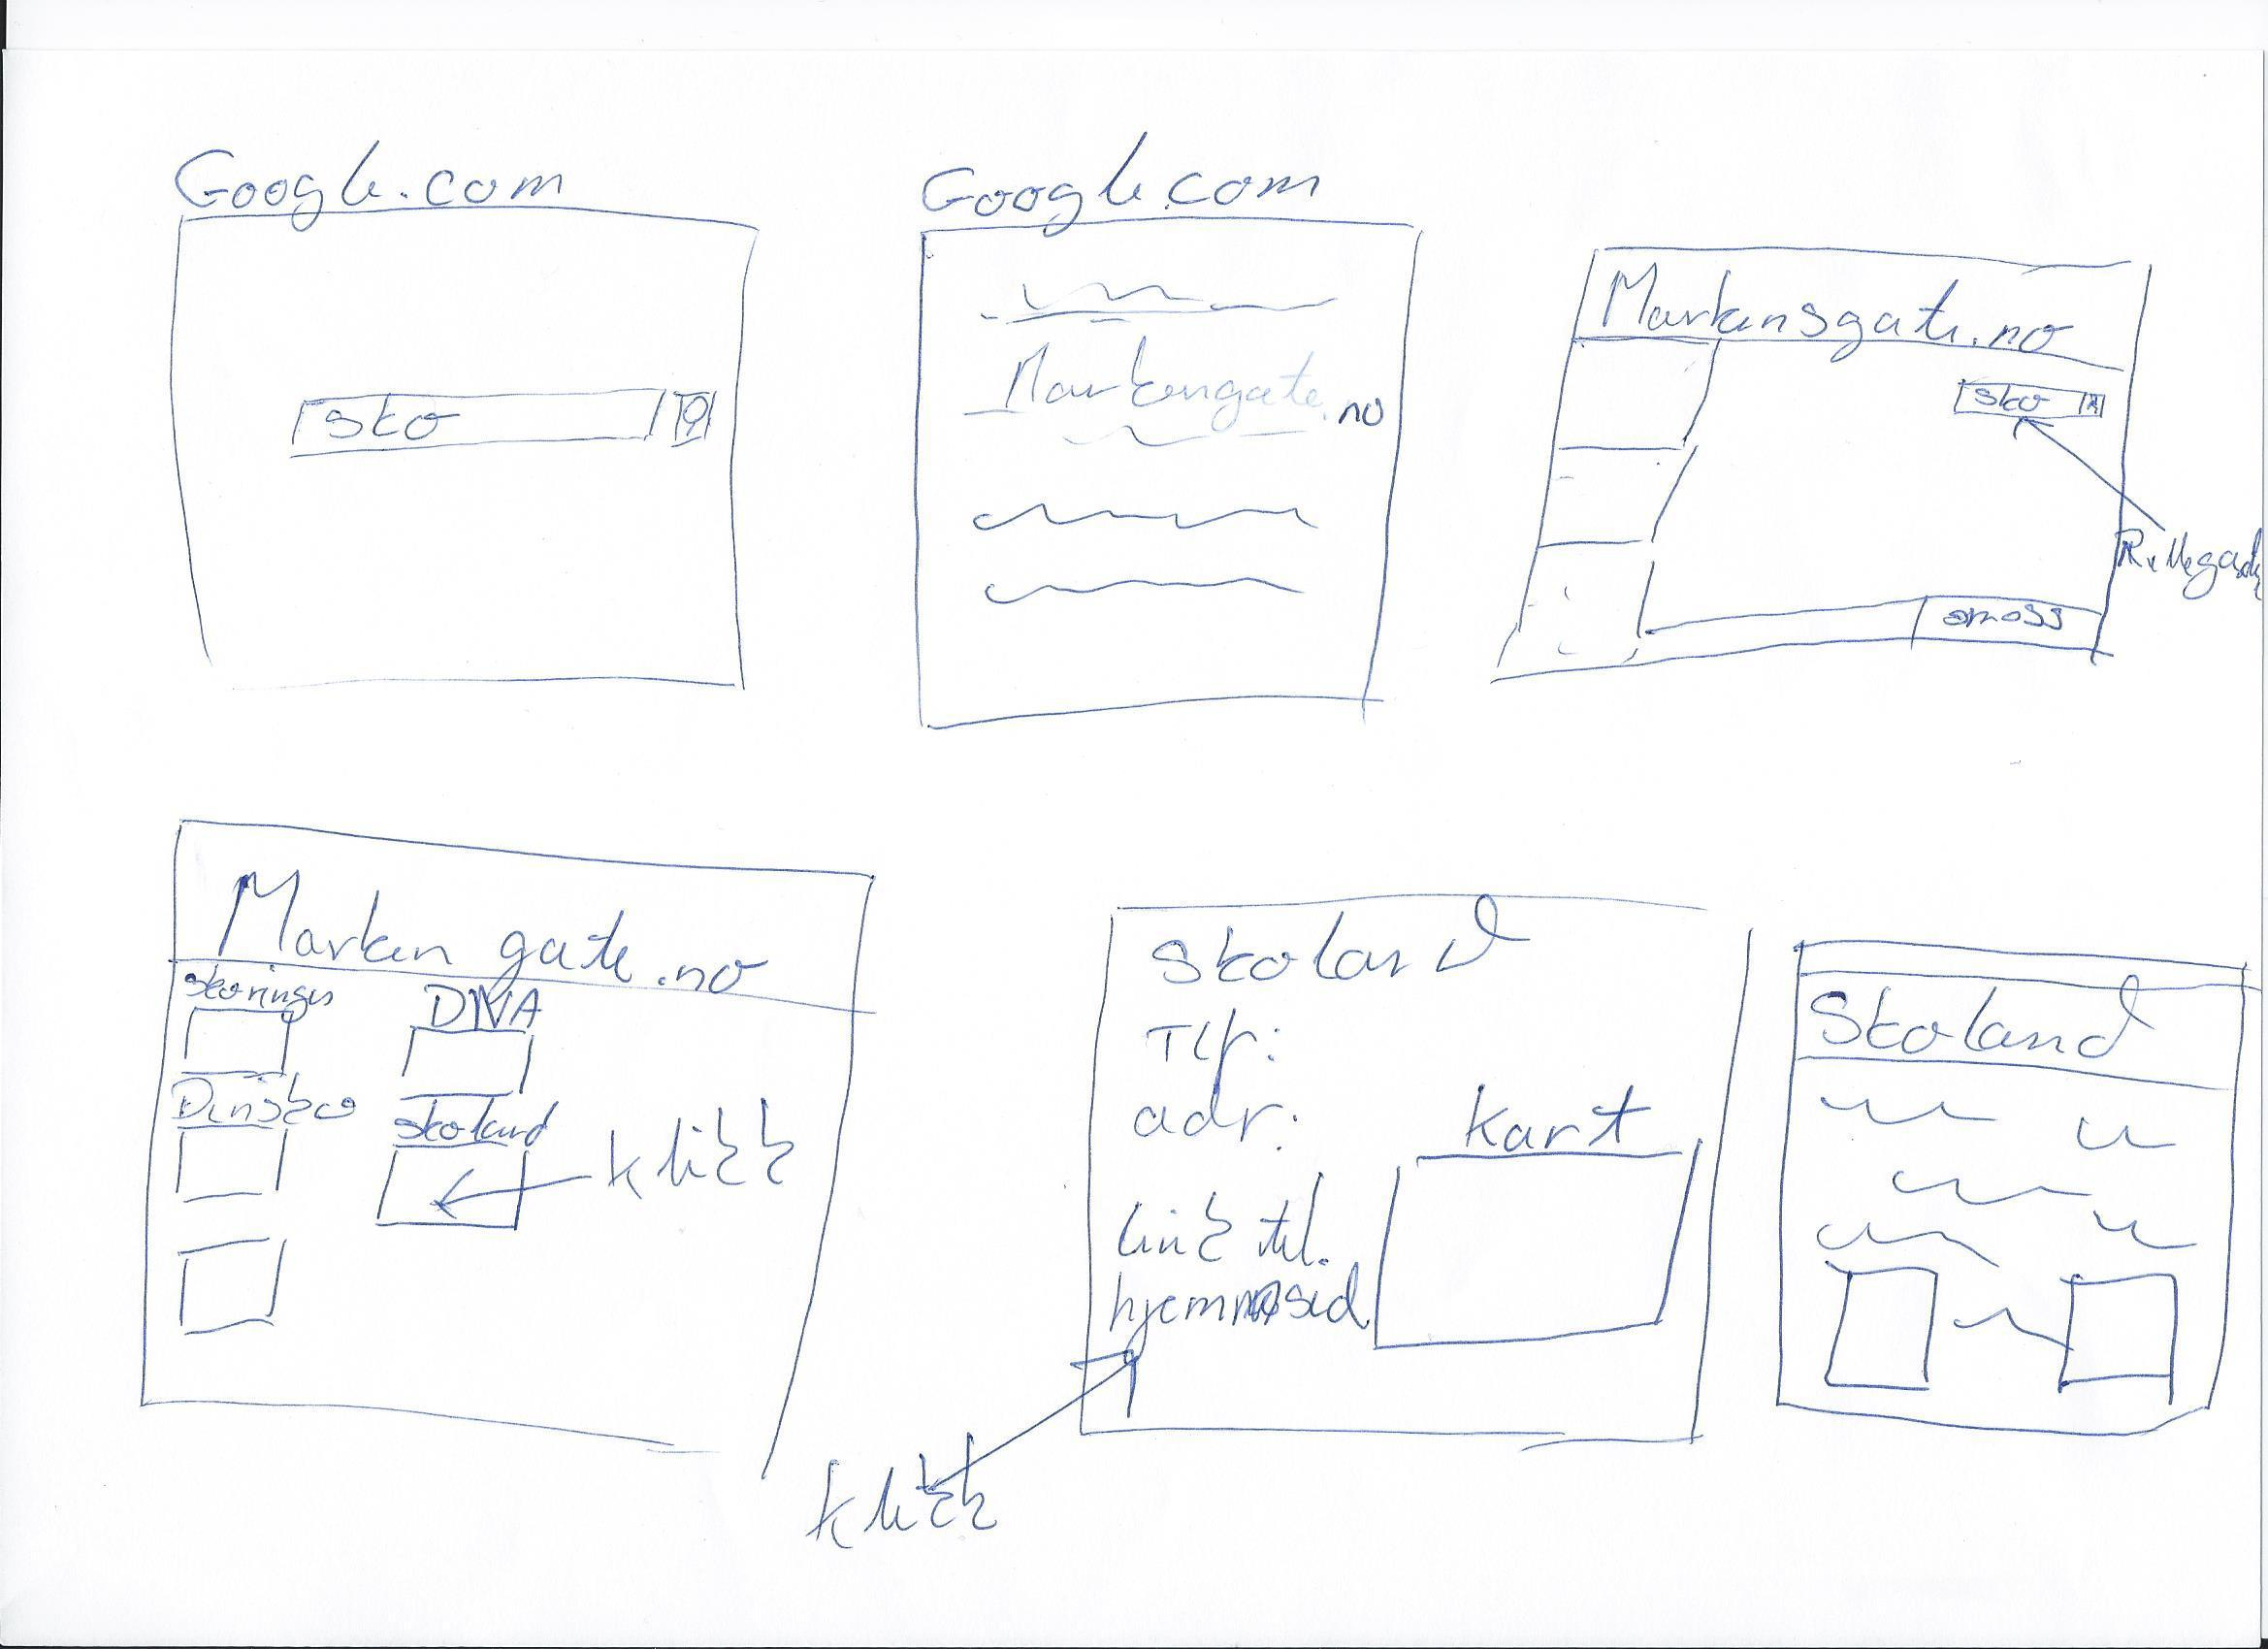 Google.com
sko
Google.com
Markengate.no
Markensgate.no
sko
omoss
Marken gate.no
skoringen
DNA
Dinsko
skoland
klikk
Skoland
Tlf:
adr:
kart
link til
hjemmsid
klikk
Skoland